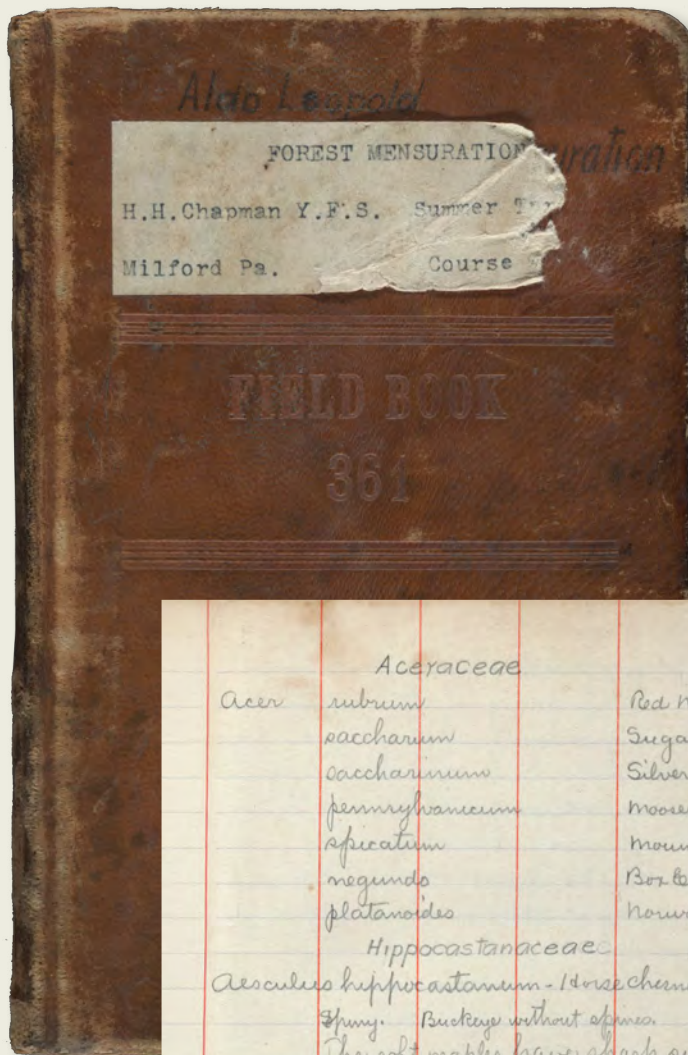 Aldo Leopold
FOREST MENSURATION uration
H.H.Chapman Y.F.S. Summer
Milford Pa. Course
FIELD BOOK
361
Aceraceae
Acer rubrum Red
saccharum Suga
saccharinum Silver
pennsylvanicum Moose
spicatum Moun
negundo Box
platanoides Norw
Hippocastanaceae
Aesculus hippocastanum - Horse chesn
Spiny. Buckeye without spines.
The soft maples have